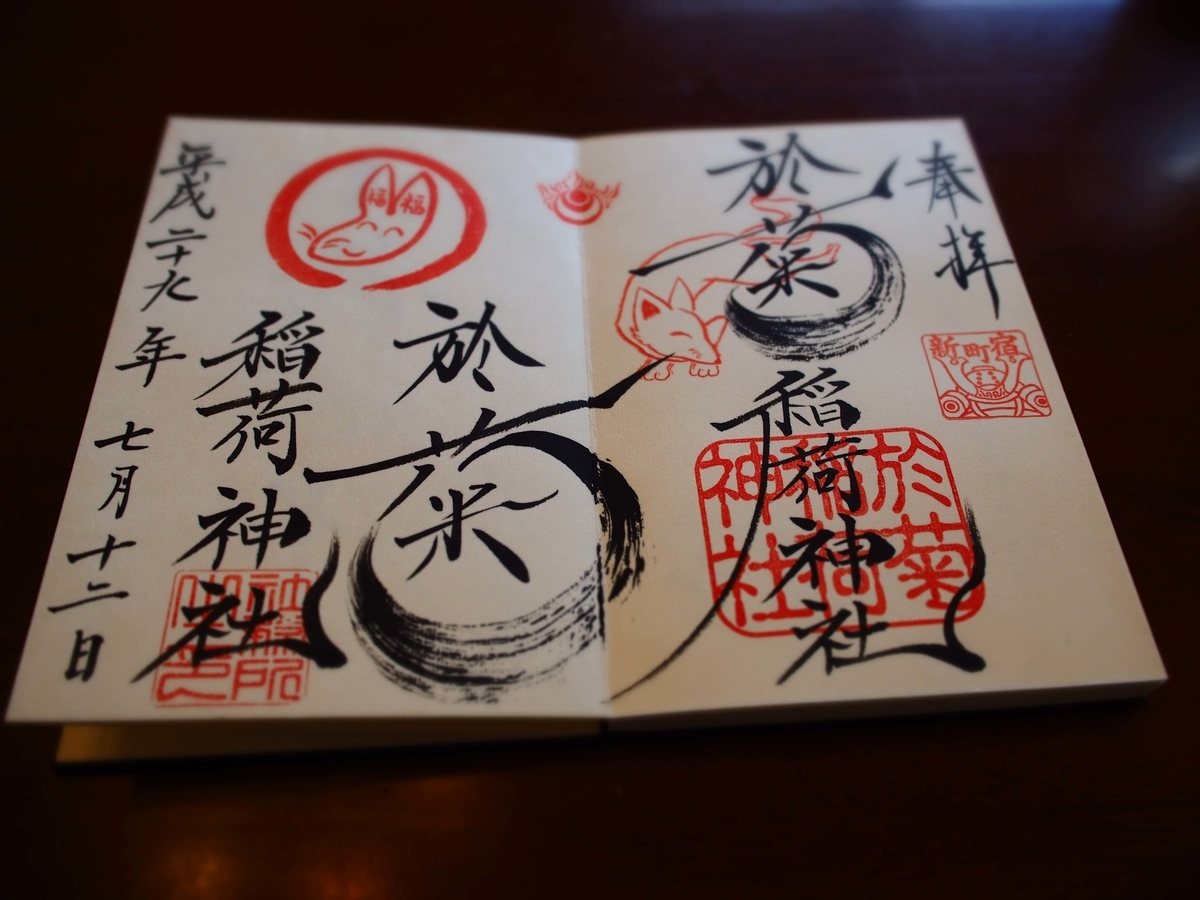 奉拝
新町宿
於菊
稲荷神社
於菊
稲荷
神社
於菊
稲荷神社
福福
平成二十九年七月十二日
社務所